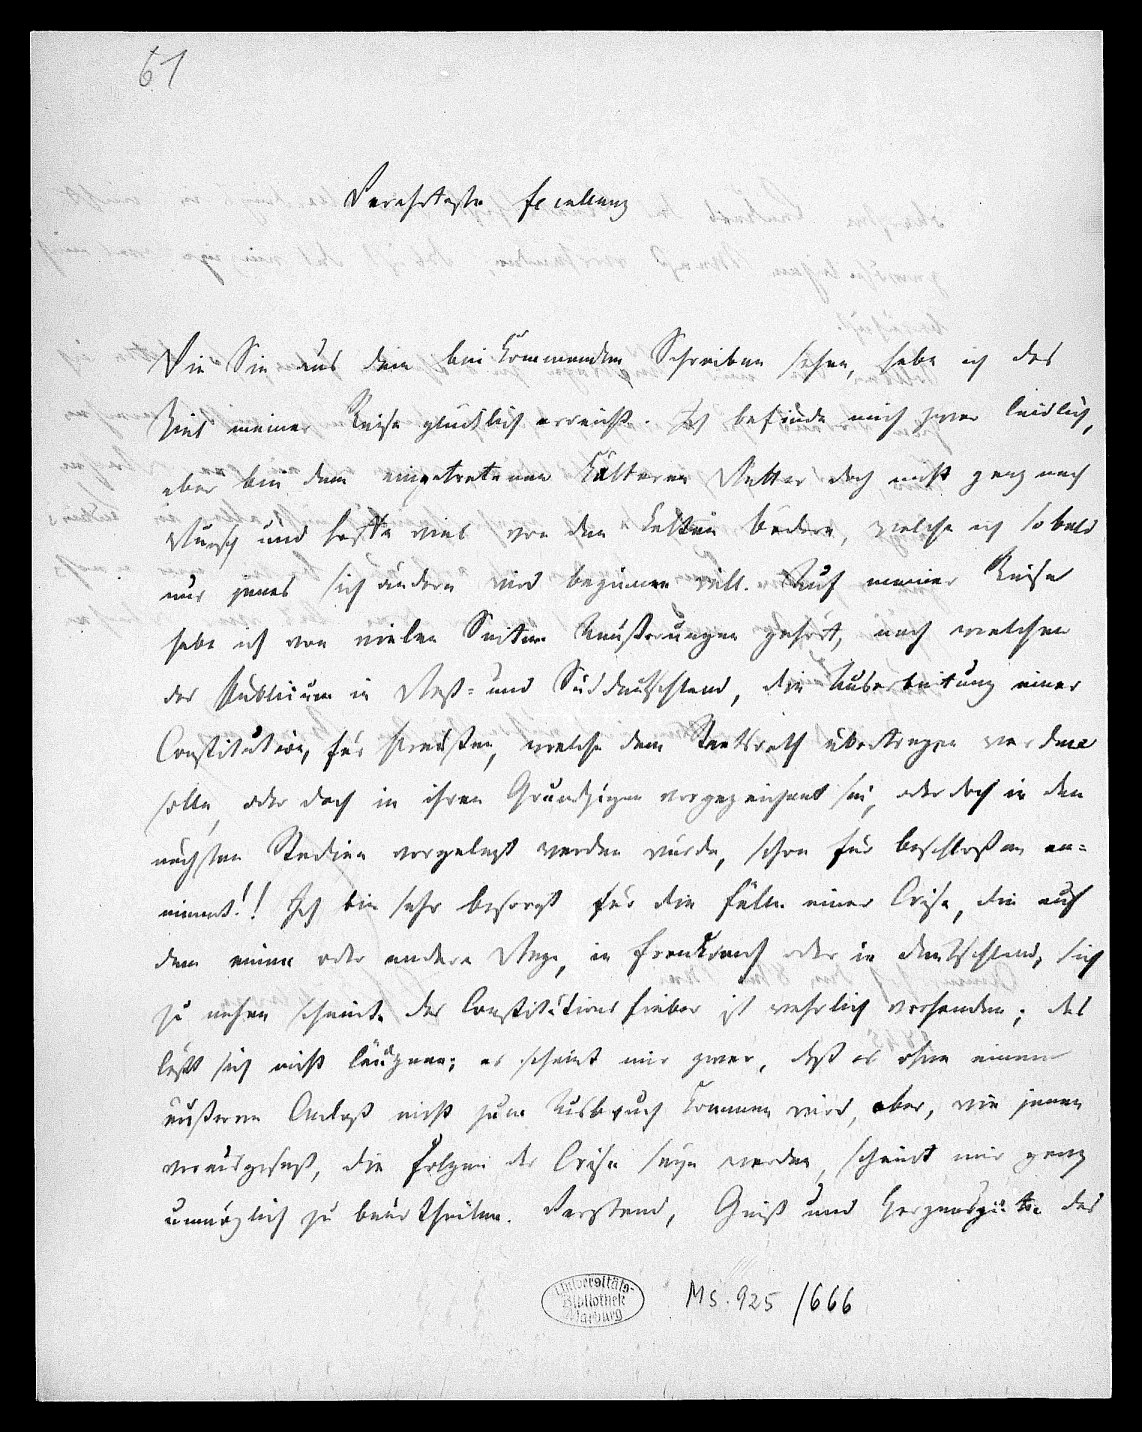 61
Verehrteste Excellenz
Wie Sie aus dem bei kommenden Schreiben sehen, habe ich das
Ziel meiner Reise glücklich erreicht. Ich befinde mich zwar leidlich,
aber bei dem eingetretenen kälteren Wetter doch nicht ganz nach
Wunsch und hoffe viel von den kalten Bädern, welche ich sobald
nur jenes sich ändern wird beginnen will. Auf meiner Reise
habe ich von vielen Seiten Äußerungen gehört, nach welchen
das Publicum in West- und Süddeutschland, die Ausarbeitung einer
Constitution, für Preußen, welche dem Staatsrath übertragen werden
solle, oder doch in ihren Grundzügen vorgezeichnet sei, oder doch in den
nächsten Stadien vorgelegt werden würde, schon für beschloßen an-
nimmt!! Ich bin sehr besorgt für die Fälle einer Crise, die auf
dem einen oder andern Wege, in Frankreich oder in Deutschland, sich
zu nahen scheint. Das Constitutionsfieber ist wahrlich vorhanden; das
läßt sich nicht läugnen; es scheint mir zwar, daß es ohne einen
äußeren Anlaß nicht zum Ausbruch kommen wird, aber, wie jenen
vorausgesetzt, die Folgen der Crise seyn werden, scheint mir ganz
unmöglich zu beurtheilen. Verstand, Geist und Herzensgüte des
Universitäts-
Bibliothek
Marburg
Ms. 925 /666